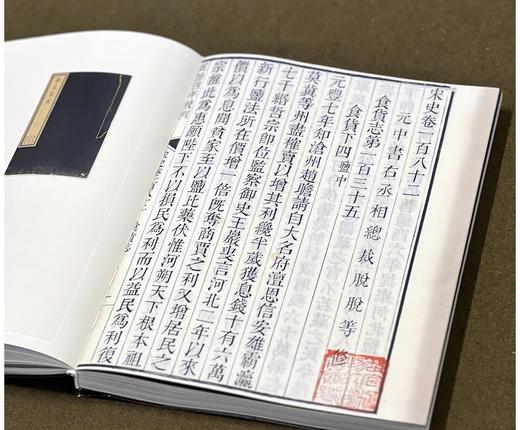 宋史卷一百八十二
元中書右丞相總裁脫脫等修
食貨志第一百三十五
食貨下四 鹽中
元豐七年知滄州趙瞻請自大名府澶恩信安雄霸瀛
莫冀等州盡榷賣以增其利纔半歲獲息錢十有六萬
七千緡哲宗即位監察御史王巖叟言河北二年以來
新行鹽法所在價增一倍既奪商賈之利又增居民之
價以為息聞貧家至以鹽比藥伏惟河朔天下根本祖
宗推此為惠願陛下不以損民為利而以益民為利復